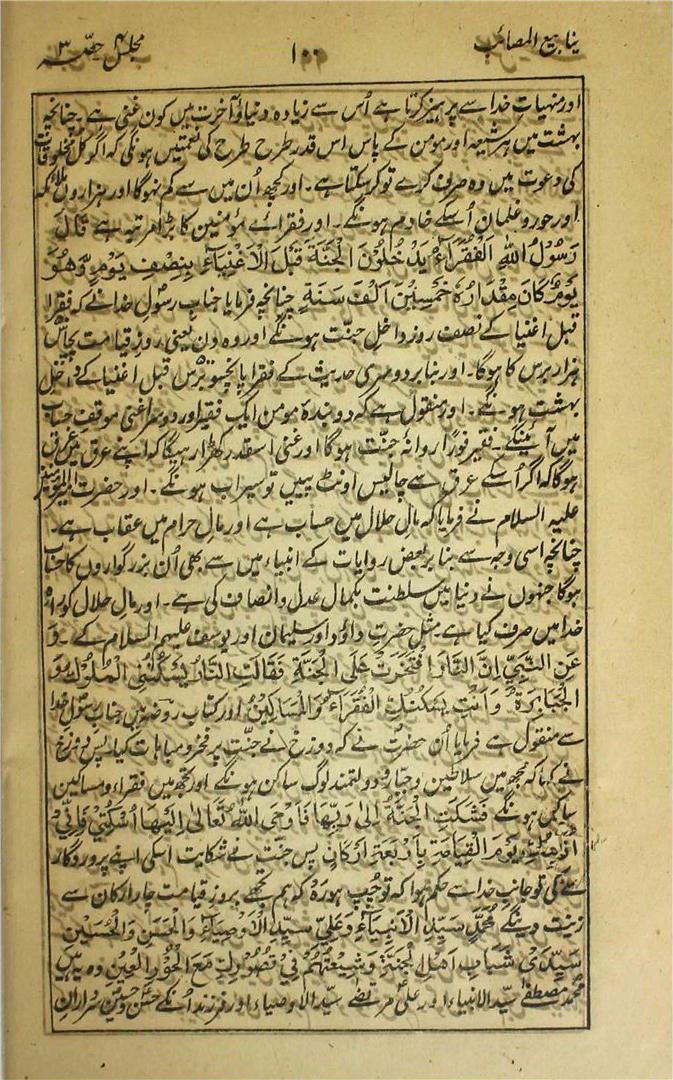 ینابیع المصائب ۱۰۰ مجلس ۴ حصہ ۳
اور منہیات خدا سے پرہیز کرتا ہے اُس سے زیادہ دنیا و آخرت میں کون غنی ہے۔ چنانچہ
بہشت میں ہر شیعہ اور مومن کے پاس اس قدر طرح طرح کی نعمتیں ہونگی کہ اگر کل مخلوقات
کی دعوت میں وہ صرف کرے تو کرسکتا ہے۔ اور کچھ اُن میں سے کم نہوگا اور ہزاروں ملائکہ
اور حور و غلمان اُسکے خادم ہونگے۔ اور فقرائے مؤمنین کا بڑا مرتبہ ہے قَالَ
رَسُوْلُ اللّٰهِ اَلْفُقَرَآءُ یَدْخُلُوْنَ الْجَنَّةَ قَبْلَ الْاَغْنِیَآءِ بِنِصْفِ یَوْمٍ وَّهُوَ
یَوْمٌ کَانَ مِقْدَارُهٗ خَمْسِیْنَ اَلْفَ سَنَةٍ چنانچہ فرمایا جناب رسُولِ خدا نے کہ فقرا
قبل اغنیا کے نصف روز داخل جنّت ہونگے اور وہ دن یعنی روز قیامت پچاس
ہزار برس کا ہوگا۔ اور بنا بر دوسری حدیث کے فقرا پانچسو برس قبل اغنیا کے داخل
بہشت ہونگے۔ اور منقول ہے کہ دو بندۂ مومن ایک فقیر اور دوسرا غنی موقف حساب
میں آئینگے۔ فقیر فورًا روانۂ جنّت ہوگا اور غنی اسقدر کھڑا رہیگا کہ اپنے عرق میں غرق
ہوگا کہ اگر اُسکے عرق سے چالیس اونٹ پییں تو سیراب ہونگے۔ اور حضرت امیرالمومنین
علیہ السلام نے فرمایا کہ مالِ حلال میں حساب ہے اور مالِ حرام میں عقاب ہے۔
چنانچہ اسی وجہ سے بنا بر بعض روایات کے انبیاء میں سے بھی اُن بزرگواروں کا حساب
ہوگا جنہوں نے دنیا میں سلطنت بکمال عدل و انصاف کی ہے۔ اور مالِ حلال کو راہ
خدا میں صرف کیا ہے۔ مثل حضرت داؤد اور سلیمان اور یوسف علیہم السلام کے۔ وَ
عَنِ النَّبِیِّ اِنَّ النَّارَ افْتَخَرَتْ عَلَی الْجَنَّةِ فَقَالَتِ النَّارُ یَسْکُنُنِی الْمُلُوْكُ وَ
الْجَبَابِرَةُ وَاَنْتِ یَسْکُنُكِ الْفُقَرَآءُ وَالْمَسَاکِیْنُ اور کتاب روضہ میں جناب رسُول خدا
سے منقول ہے فرمایا اُن حضرتؐ نے کہ دوزخ نے جنّت پر فخر و مباہات کیا۔ پس دوزخ
نے کہا کہ مجھ میں سلاطین و جبّار و دولتمند لوگ ساکن ہونگے اور تجھ میں فقراء و مساکین
ساکن ہونگے فَشَکَتِ الْجَنَّةُ اِلٰی رَبِّهَا فَاَوْحَی اللّٰهُ تَعَالٰی اِلَیْهَا اُسْکُتِیْ فَاِنِّیْ
اُزَیِّنُكِ یَوْمَ الْقِیَامَةِ بِاَرْبَعَةِ اَرْکَانٍ پس جنّت نے شکایت اسکی اپنے پروردگار
سے کی تو جانب خدا سے حکم ہوا کہ تو چپ ہو رہ کہ ہم تجھے بروز قیامت چار ارکان سے
زینت دینگے مُحَمَّدٍ سَیِّدِ الْاَنْبِیَآءِ وَعَلِیٍّ سَیِّدِ الْاَوْصِیَآءِ وَالْحَسَنِ وَالْحُسَیْنِ
سَیِّدَیْ شَبَابِ اَهْلِ الْجَنَّةِ وَشِیْعَتُهُمْ فِیْ قُصُوْرِكِ مَعَ الْحُوْرِ الْعِیْنِ وہ یہ ہیں
محمد مصطفےٰ سیّد الانبیاء اور علیؑ مرتضےٰ سیّد الاوصیاء اور فرزند اُنکے حسنؑ و حسینؑ سردارانِ